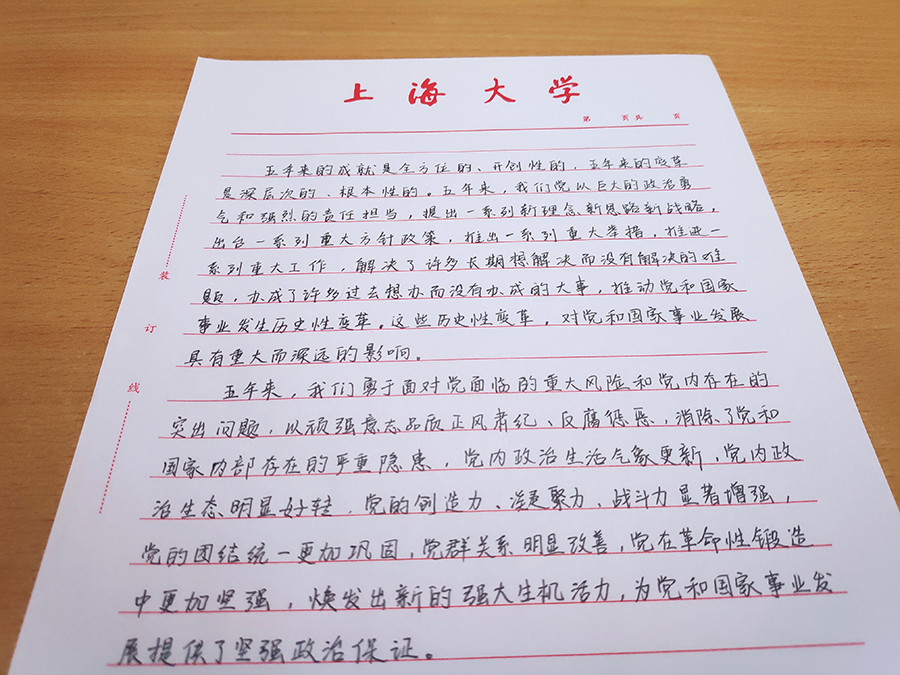 上海大学
第 页共 页
五年来的成就是全方位的、开创性的，五年来的变革
是深层次的、根本性的。五年来，我们党以巨大的政治勇
气和强烈的责任担当，提出一系列新理念新思路新战略，
出台一系列重大方针政策，推出一系列重大举措，推进一
系列重大工作，解决了许多长期想解决而没有解决的难
题，办成了许多过去想办而没有办成的大事，推动党和国家
事业发生历史性变革。这些历史性变革，对党和国家事业发展
具有重大而深远的影响。
五年来，我们勇于面对党面临的重大风险和党内存在的
突出问题，以顽强意志品质正风肃纪、反腐惩恶，消除了党和
国家内部存在的严重隐患，党内政治生活气象更新，党内政
治生态明显好转，党的创造力、凝聚力、战斗力显著增强，
党的团结统一更加巩固，党群关系明显改善，党在革命性锻造
中更加坚强，焕发出新的强大生机活力，为党和国家事业发
展提供了坚强政治保证。
装
订
线